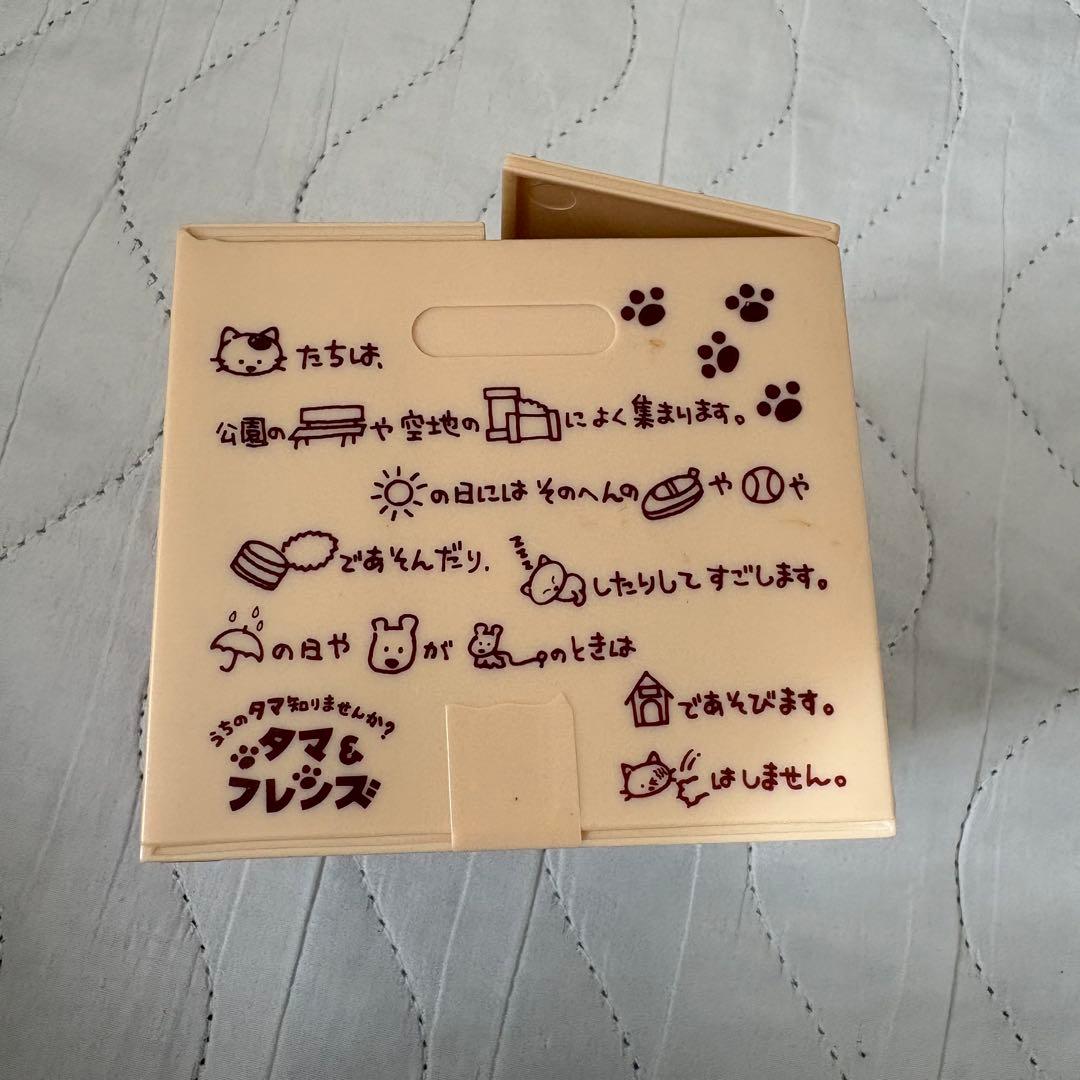 たちは、
公園のや空地のによく集まります。
の日には そのへんのやや
であそんだり、したりして すごします。
の日やがのときは
であそびます。
はしません。
うちのタマ知りませんか?
タマ&
フレンズ